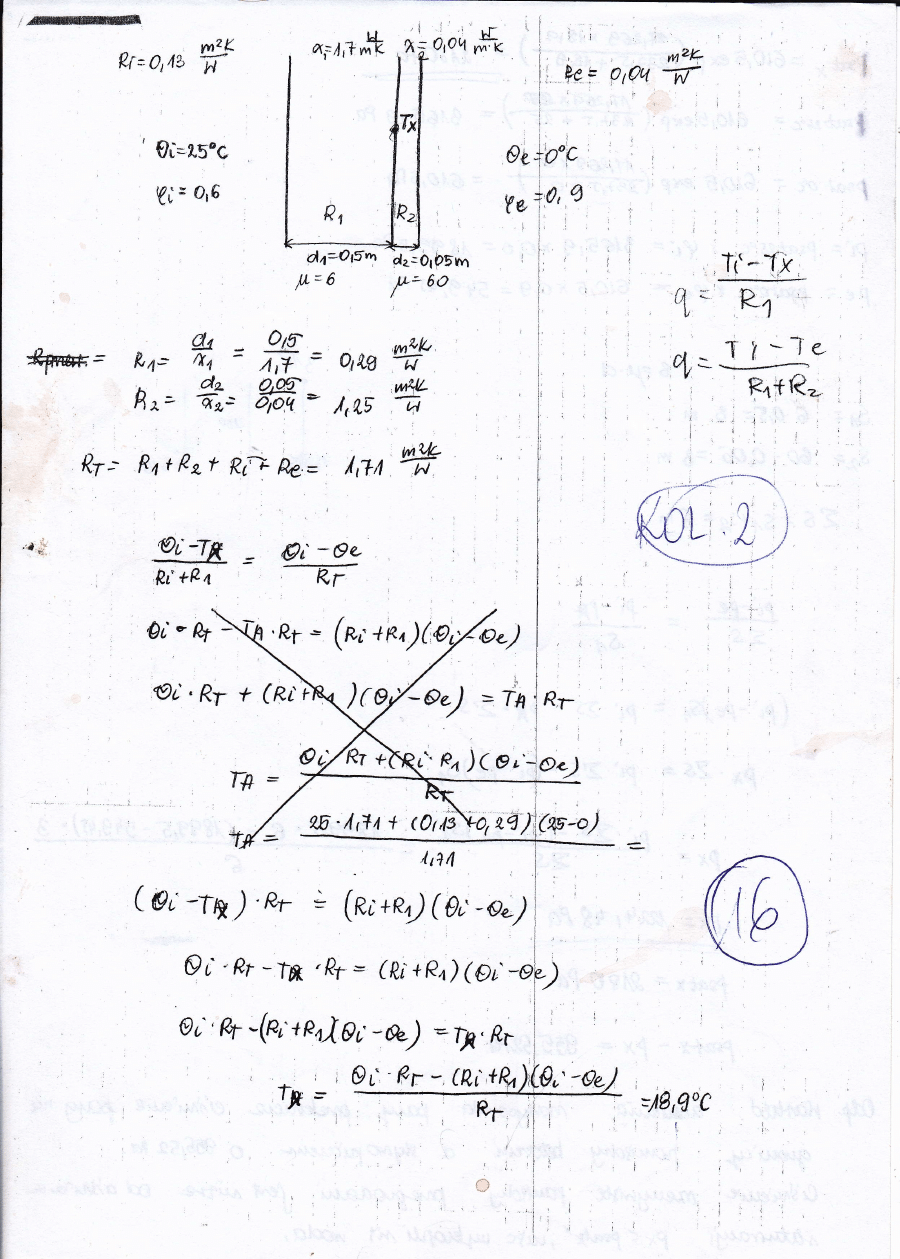 Ri=0,13 m²K/W
λ₁=1,7 W/mK λ₂=0,04 W/m·K
Re = 0,04 m²K/W
Tx
θi=25°C
θe=0°C
φi=0,6
φe=0,9
R₁ R₂
d₁=0,5m d₂=0,05m
μ=6 μ=60
q = (Ti-Tx)/R₁
R₁= d₁/λ₁ = 0,5/1,7 = 0,29 m²K/W
q = (Ti-Te)/(R₁+R₂)
R₂= d₂/λ₂ = 0,05/0,04 = 1,25 m²K/W
RT= R₁+R₂ + Ri + Re = 1,71 m²K/W
KOL.2
(θi-Tx)/(Ri+R₁) = (θi-θe)/RT
θi·RT - TA·RT = (Ri+R₁)(θi-θe)
θi·RT + (Ri+R₁)(θi-θe) = TA·RT
TA = (θi·RT+(Ri·R₁)(θi-θe))/RT
TA = (25·1,71 + (0,13+0,29)(25-0))/1,71 =
(θi-Tx)·RT = (Ri+R₁)(θi-θe)
16
θi·RT-Tx·RT=(Ri+R₁)(θi-θe)
θi·RT-(Ri+R₁)(θi-θe) = Tx·RT
Tx = (θi·RT - (Ri+R₁)(θi-θe))/RT =18,9°C